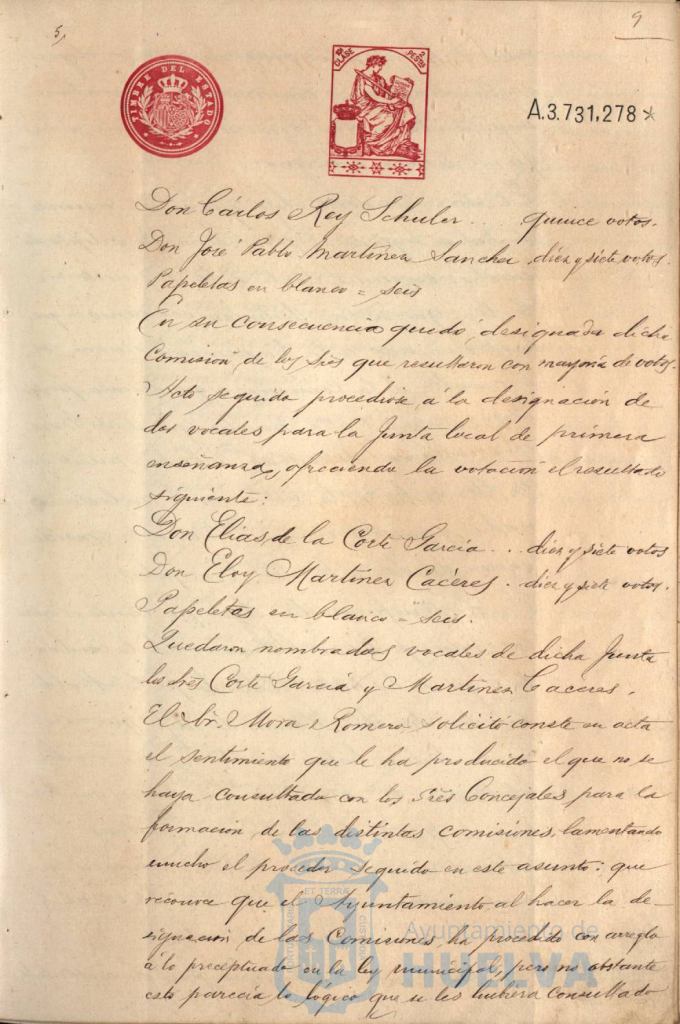 5,
9
TIMBRE DEL ESTADO
CLASE 2 PESTAS
A.3.731,278*
Don Cárlos Rey Schuler .. quince votos.
Don José Pablo Martinez Sanchez . diez y siete votos.
Papeletas en blanco = seis
En su consecuencia quedó designada dicha
Comisión de los Sres que resultaron con mayoría de votos.
Acto seguido procediose á la designación de
dos vocales para la Junta local de primera
enseñanza, ofreciendo la votación el resultado
siguiente:
Don Elias de la Corte García . . diez y siete votos
Don Eloy Martinez Caceres . diez y siete votos.
Papeletas en blanco = seis.
Quedaron nombrados vocales de dicha Junta
los Sres Corte García y Martinez Caceres.
El Sr. Mora Romero solicitó conste en acta
el sentimiento que le ha producido el que no se
haya consultado con los Sres Concejales para la
formacion de las distintas comisiones, lamentando
mucho el proceder seguido en este asunto: que
reconoce que el Ayuntamiento al hacer la de-
signacion de las Comisiones, ha procedido con arreglo
á lo preceptuado en la ley municipal, pero no obstante
esto parecía lo lógico que se les hubiera consultado
Ayuntamiento de
HUELVA